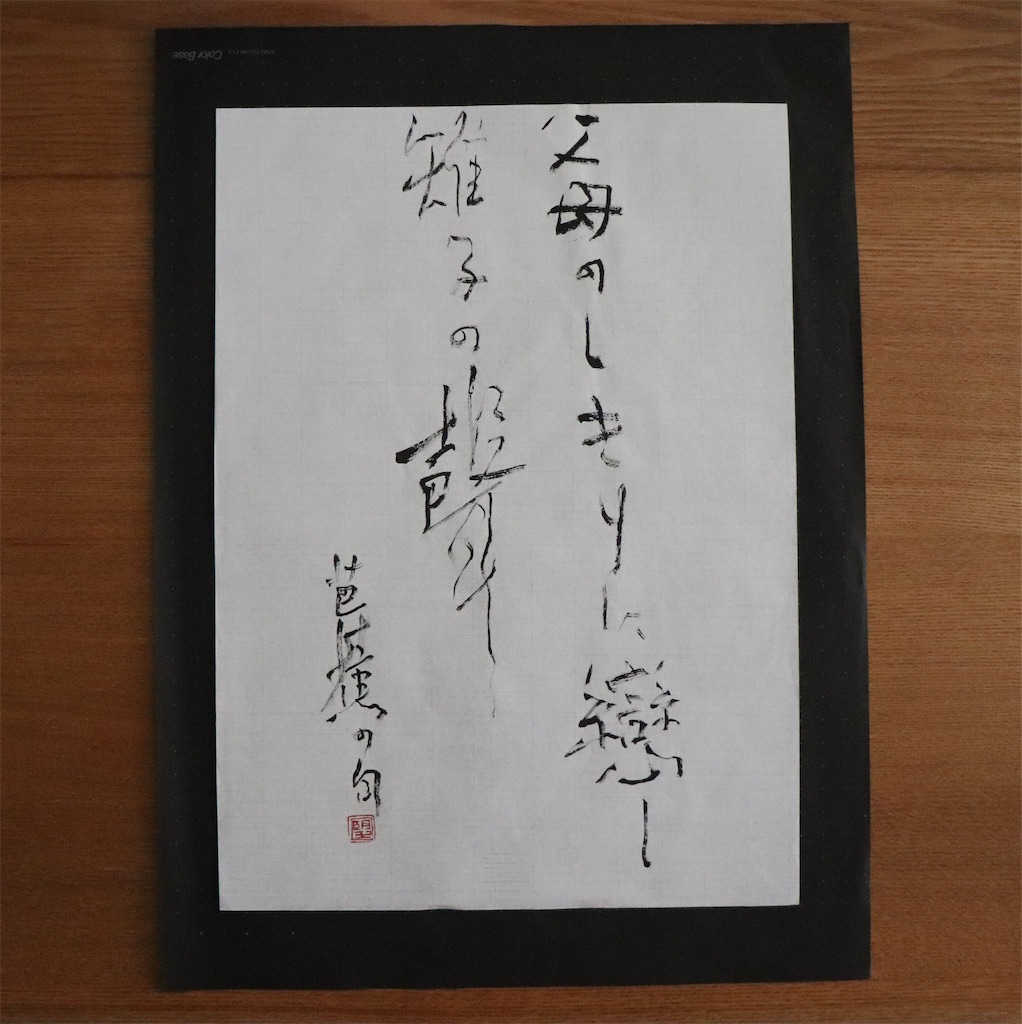 父母のしきりに戀し
雉子の聲
芭蕉の句
Color Base